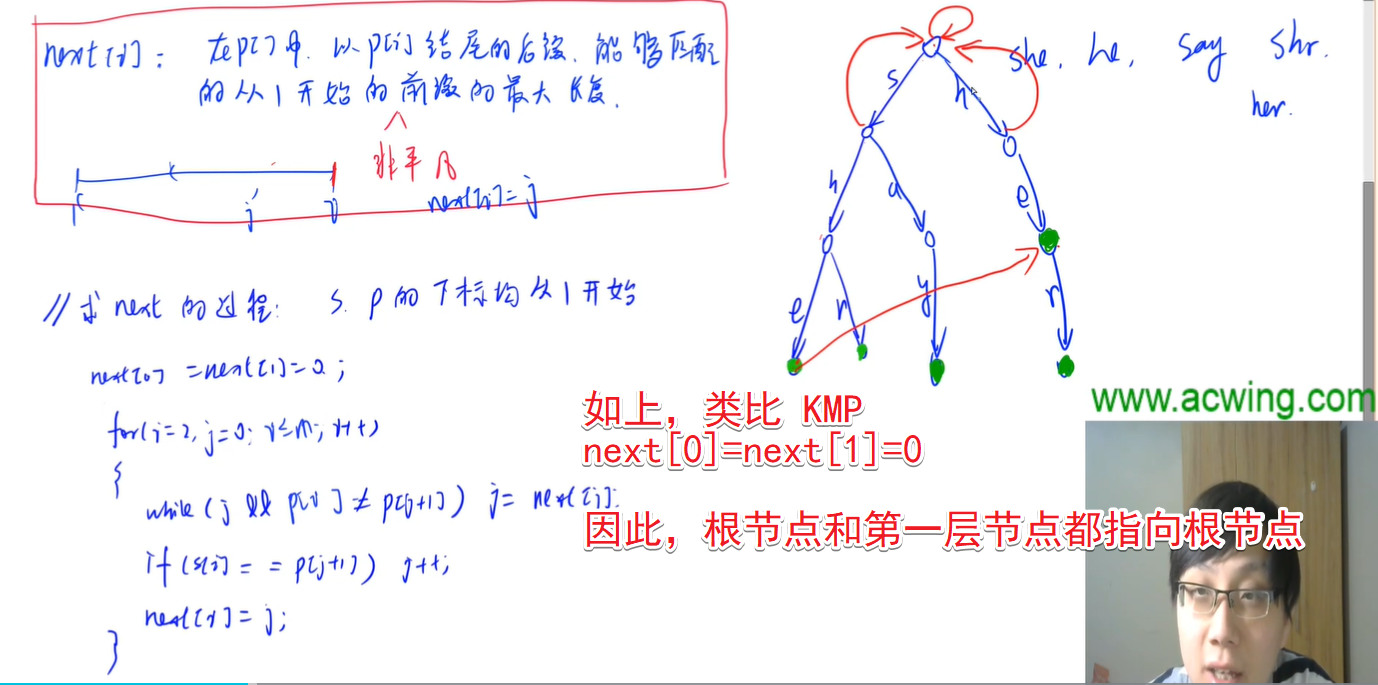 next[i]: 在p[]中，以p[i]结尾的后缀，能够匹配
的从1开始的前缀的最大长度.
非平凡
1 j i next[i]=j
// 求next的过程: s. p的下标均从1开始
next[0] =next[1]=0;
for(i=2, j=0; i≤m; i++)
{
while (j && p[i] ≠ p[j+1]) j= next[j];
if (s[i] == p[j+1]) j++;
next[i]= j;
}
she, he, say shr.
her.
s h
h a e
e r y r
www.acwing.com
如上，类比 KMP
next[0]=next[1]=0
因此，根节点和第一层节点都指向根节点